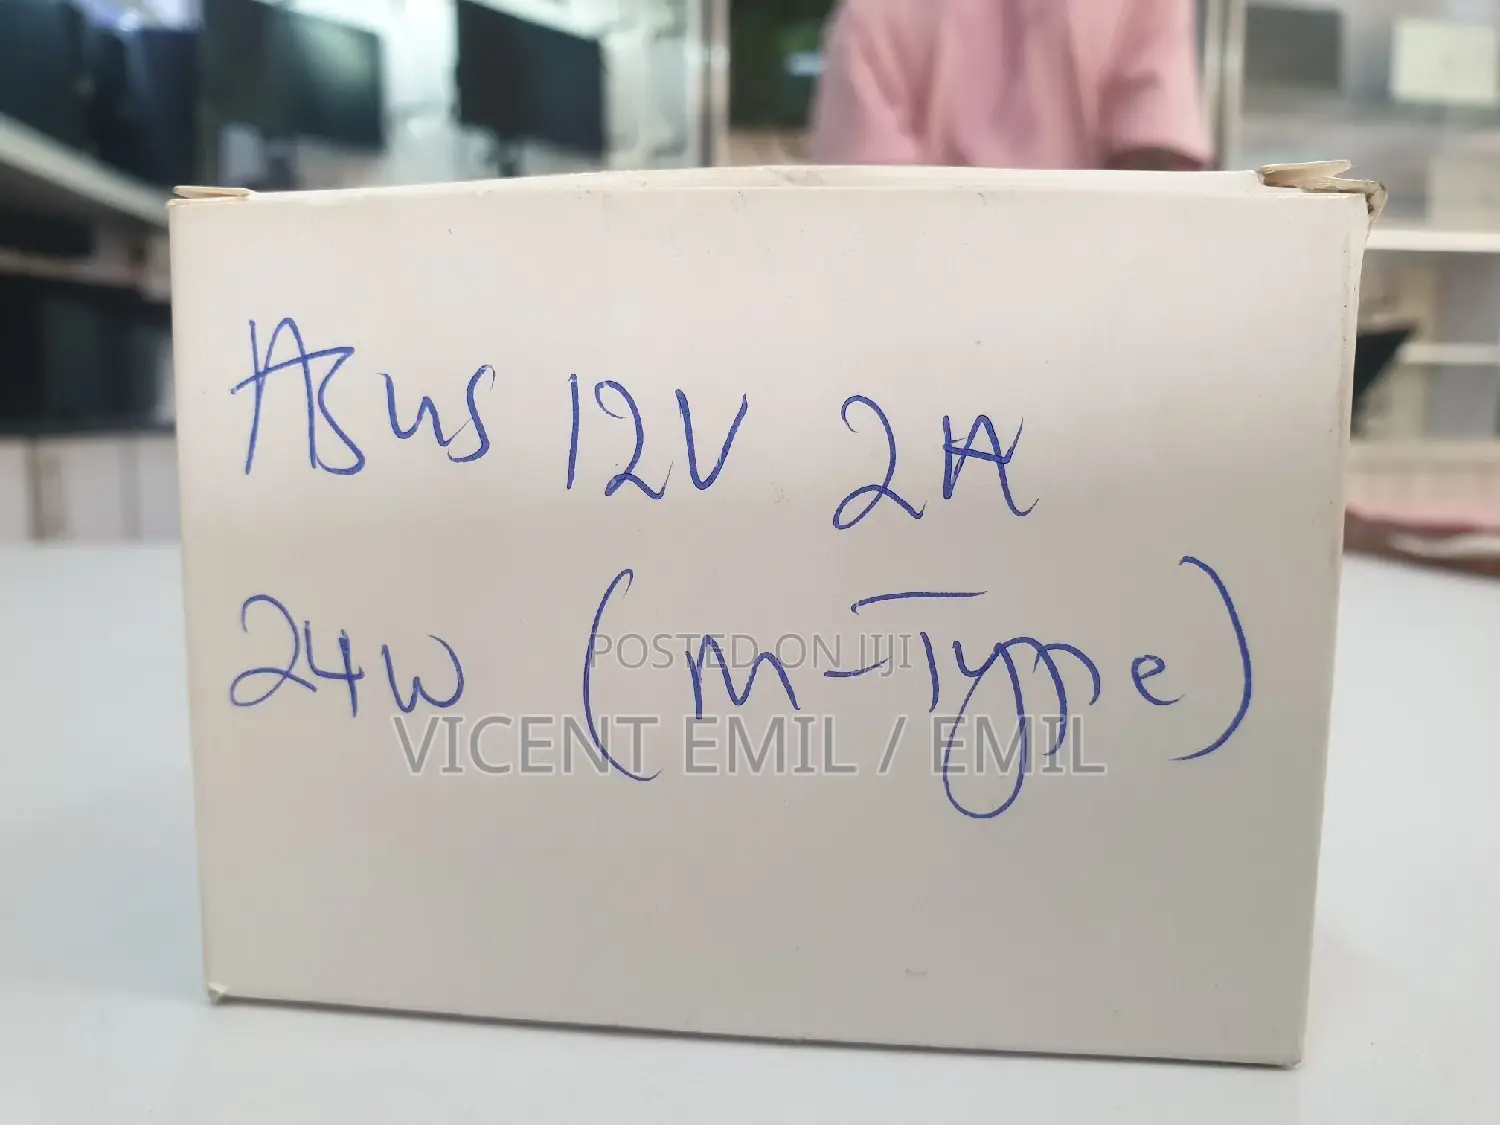 Asus 12V 2A
24W (M-Type)
POSTED ON JIJI
VICENT EMIL / EMIL